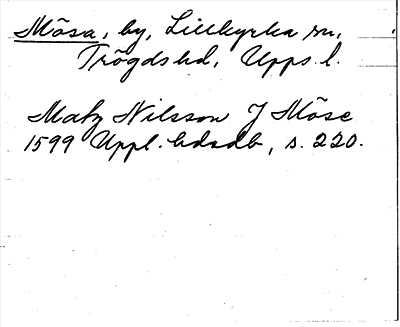 Mõsa, by, Lillkyrka sn,
Trögds hd, Upps. l.
Matz Nilsson J Mõse
1599 Uppl. hdsdb, s. 220.